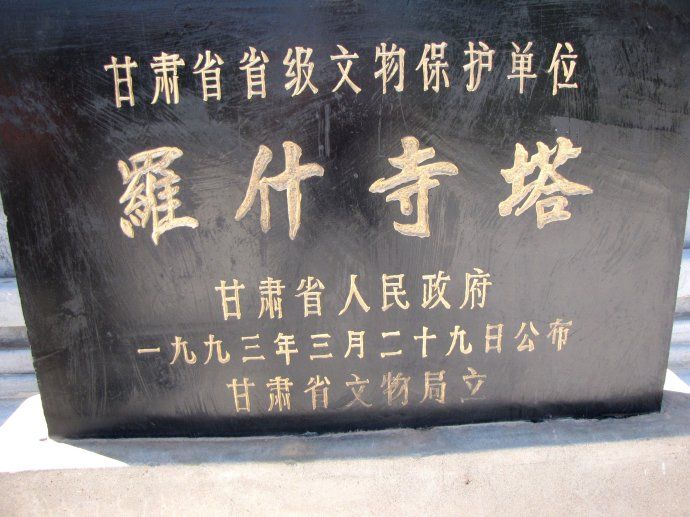 甘肃省省级文物保护单位
羅什寺塔
甘肃省人民政府
一九九三年三月二十九日公布
甘肃省文物局立